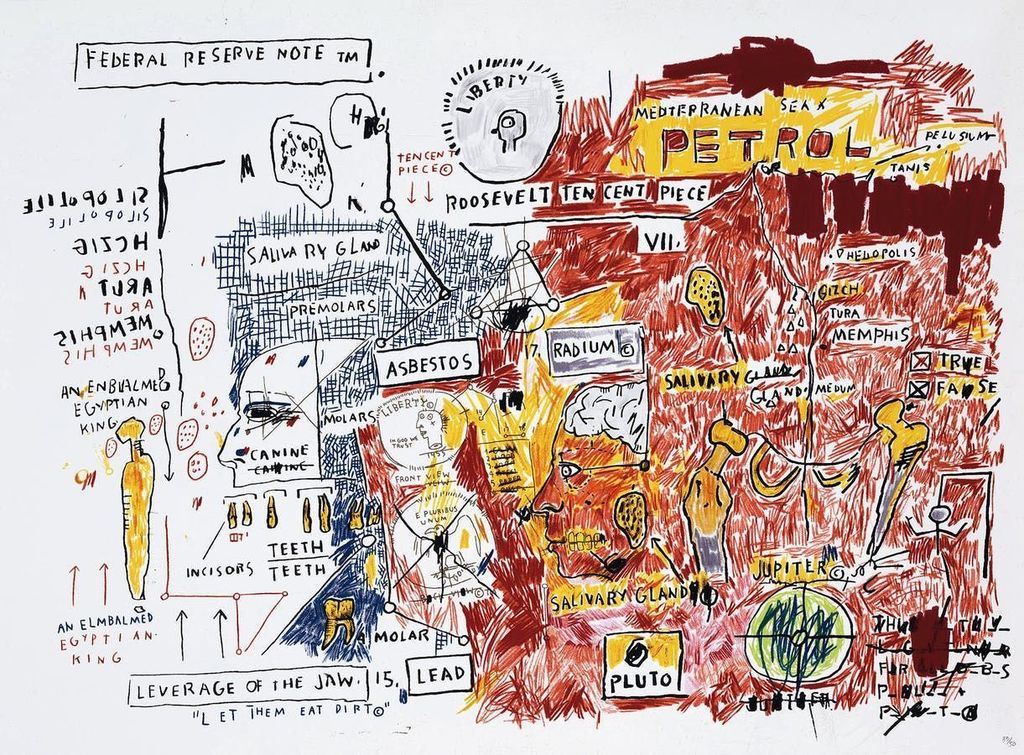 FEDERAL RESERVE NOTE TM.
LIBERTY
MEDTERRANEAN SEA
PETROL
PELUSIUM
TANIS
TENCENT
PIECE©
ROOSEVELT TEN CENT PIECE
VII.
SALIVARY GLAND
PREMOLARS
MEMPHIS
MEMPHIS
AN ENBIALMED
EGYPTIAN
KING
HELIOPOLIS
GIZCH
TURA
MEMPHIS
ASBESTOS
17.
RADIUM©
TRUE
FALSE
SALIVARY GLAND
GLAND
MEDUM
MOLARS
LIBERTY©
IN GOD WE
TRUST
1955
FRONT VIEW
CANINE
CANINE
E PLURIBUS
UNUM
TEETH
INCISORS
TEETH
JUPITER©
SALIVARY GLAND
AN ELMBALMED
EGYPTIAN.
KING
MOLAR
LEVERAGE OF THE JAW.
15.
LEAD
PLUTO
JUPITER
"LET THEM EAT DIRT©"